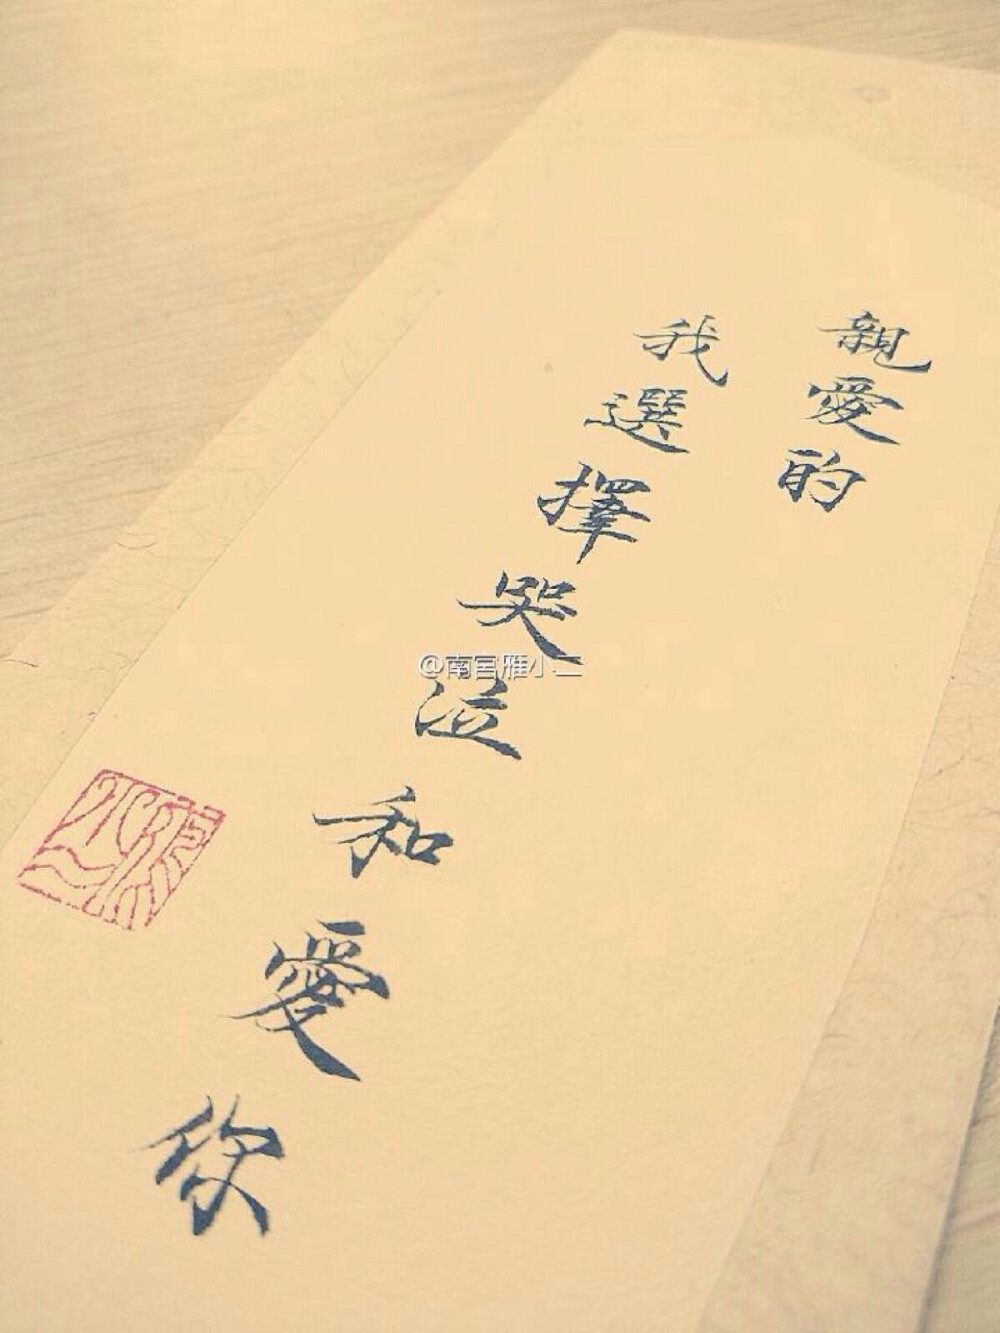 親愛的
我選擇哭泣和愛你
@南宫雁小二